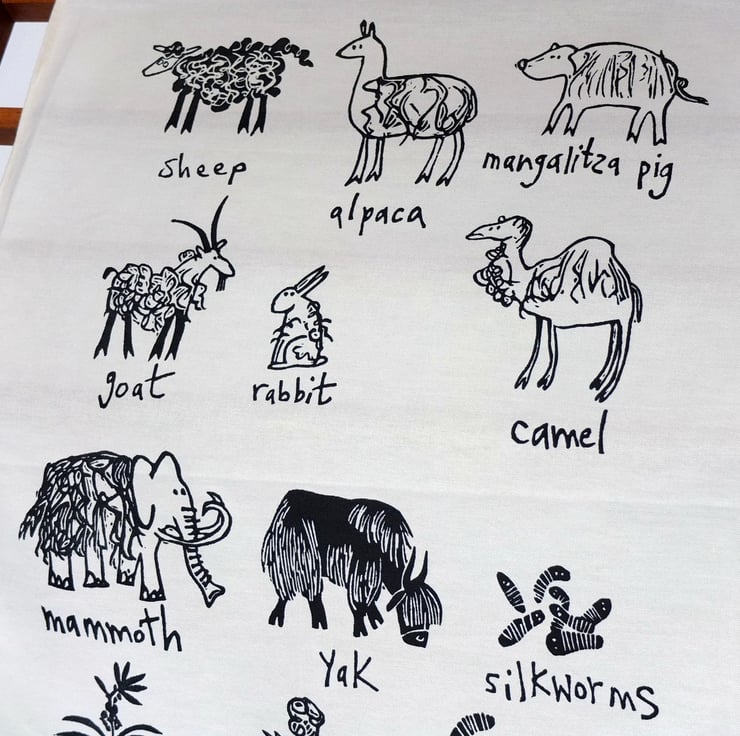 sheep
alpaca
mangalitza pig
goat
rabbit
camel
mammoth
Yak
silkworms